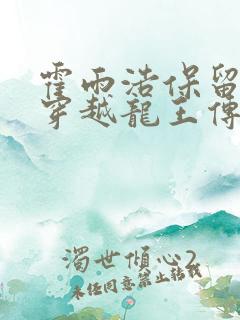 霍雨浩保留
穿越龍王傳
濁世傾心2
未任同意禁止轉載